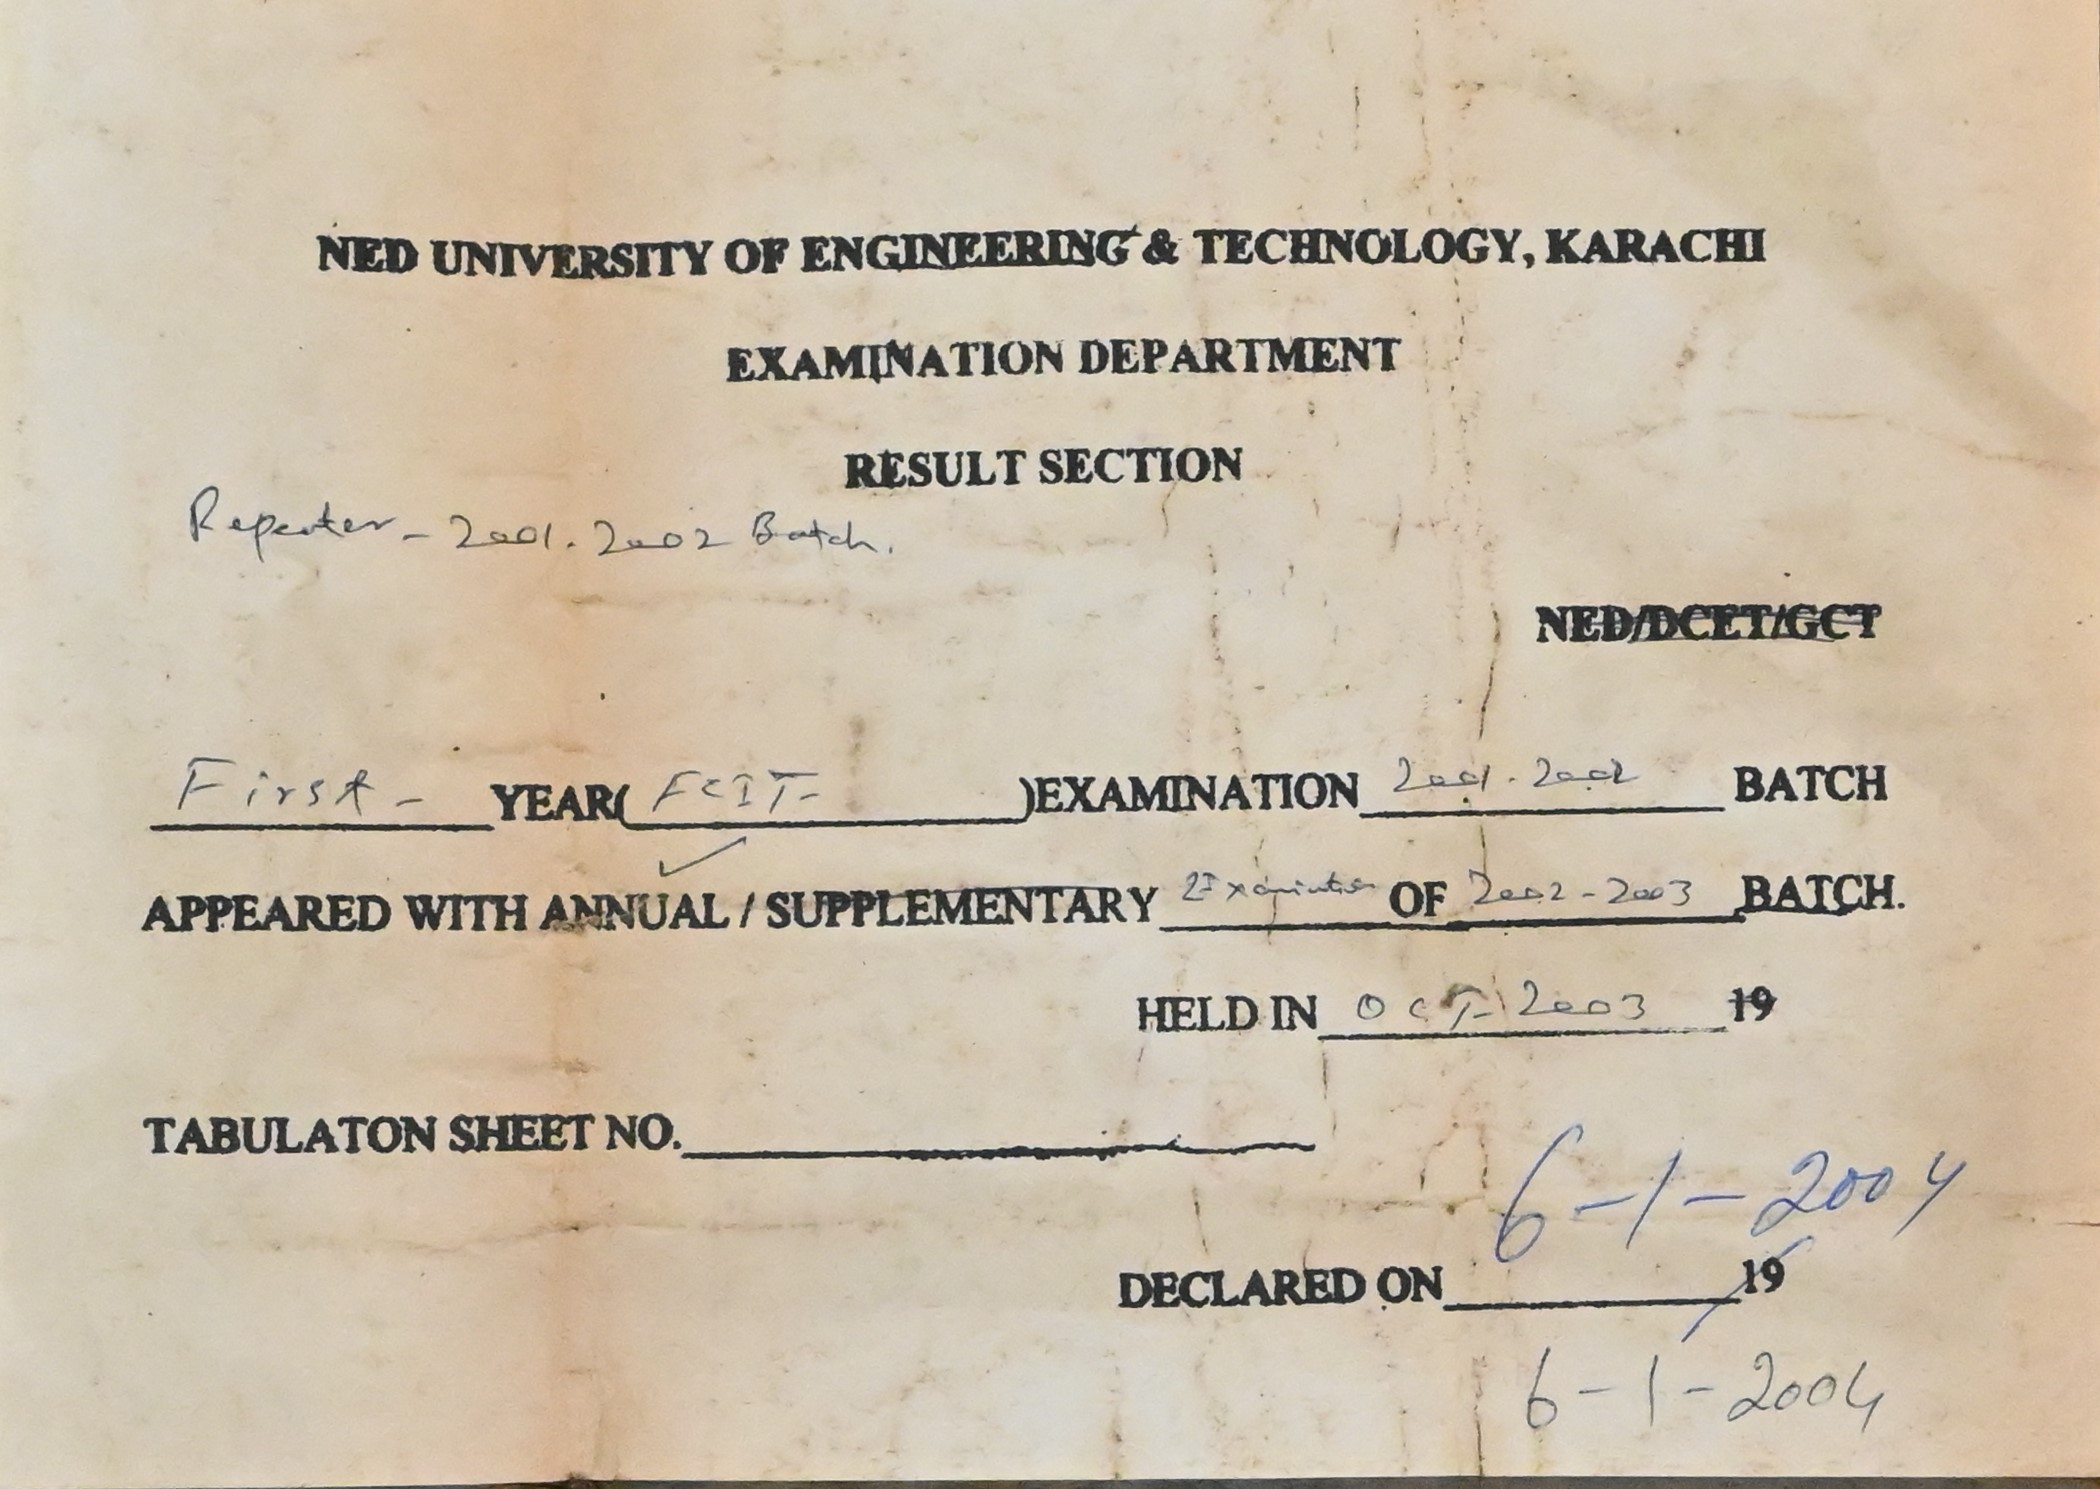 NED UNIVERSITY OF ENGINEERING & TECHNOLOGY, KARACHI
EXAMINATION DEPARTMENT
RESULT SECTION
Repeater - 2001-2002 Batch.
NED/DCET/GCT
First - YEAR( FCIT- )EXAMINATION 2001-2002 BATCH
APPEARED WITH ANNUAL / SUPPLEMENTARY Examination OF 2002-2003 BATCH.
HELD IN OCT- 2003 19
TABULATON SHEET NO.
6-1-2004
DECLARED ON 19
6-1-2004